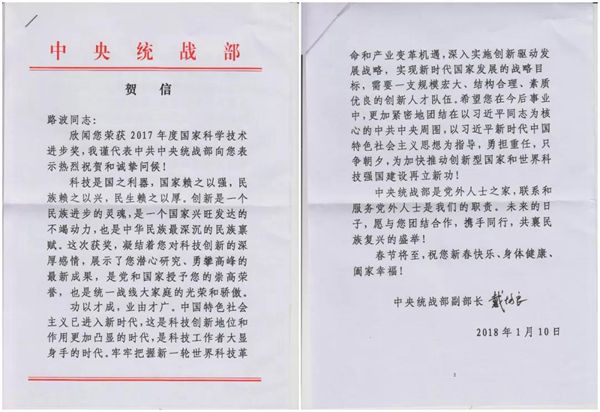 中央统战部
贺信
路波同志:
欣闻您荣获2017年度国家科学技术
进步奖,我谨代表中共中央统战部向您表
示热烈祝贺和诚挚问候!
科技是国之利器,国家赖之以强,民
族赖之以兴,民生赖之以厚。创新是一个
民族进步的灵魂,是一个国家兴旺发达的
不竭动力,也是中华民族最深沉的民族禀
赋。这次获奖,凝结着您对科技创新的深
厚感情,展示了您潜心研究、勇攀高峰的
最新成果,是党和国家授予您的崇高荣
誉,也是统一战线大家庭的光荣和骄傲。
功以才成,业由才广。中国特色社会
主义已进入新时代,这是科技创新地位和
作用更加凸显的时代,是科技工作者大显
身手的时代。牢牢把握新一轮世界科技革
命和产业变革机遇,深入实施创新驱动发
展战略,实现新时代国家发展的战略目
标,需要一支规模宏大、结构合理、素质
优良的创新人才队伍。希望您在今后事业
中,更加紧密地团结在以习近平同志为核
心的中共中央周围,以习近平新时代中国
特色社会主义思想为指导,勇担重任,只
争朝夕,为加快推动创新型国家和世界科技
强国建设再立新功!
中央统战部是党外人士之家,联系和
服务党外人士是我们的职责。未来的日
子,愿与您团结合作,携手同行,共襄民
族复兴的盛举!
春节将至,祝您新春快乐、身体健康、
阖家幸福!
中央统战部副部长 戴均良
2018年1月10日
2